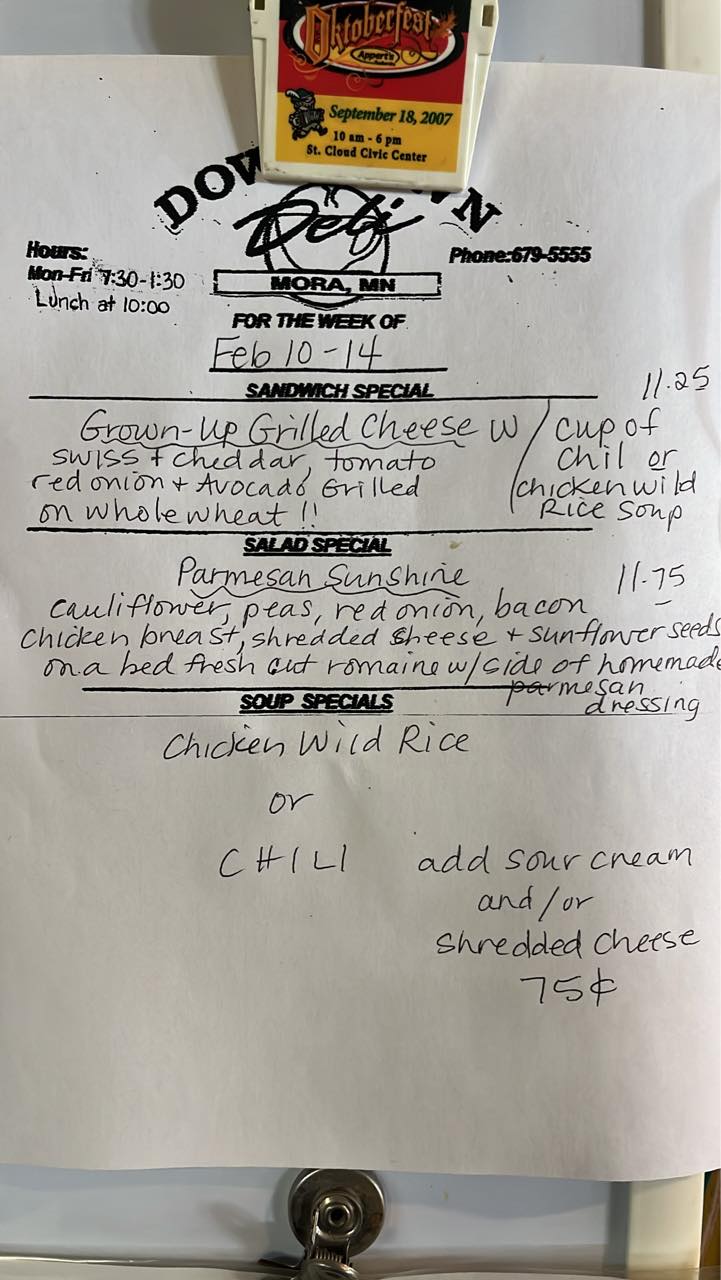 Oktoberfest
Appert's
September 18, 2007
10 am - 6 pm
St. Cloud Civic Center
Deli
MORA, MN
Hours:
Mon-Fri 7:30-1:30
Lunch at 10:00
Phone:679-5555
FOR THE WEEK OF
Feb 10-14
SANDWICH SPECIAL
11.25
Grown-Up Grilled Cheese w/ cup of
swiss + cheddar, tomato chil or
red onion + Avocado Grilled chicken wild
on whole wheat !! Rice Soup
SALAD SPECIAL
Parmesan Sunshine 11.75
cauliflower, peas, red onion, bacon
chicken breast, shredded cheese + sunflower seeds
on a bed fresh cut romaine w/side of homemade
parmesan
dressing
SOUP SPECIALS
Chicken Wild Rice
or
CHILI add sour cream
and/or
shredded cheese
75¢